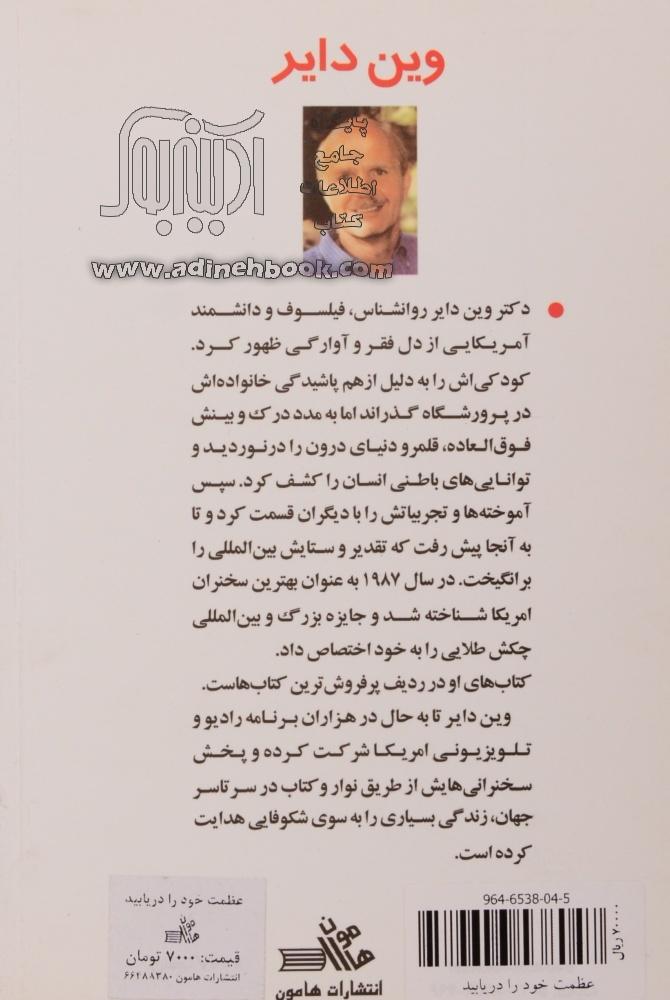 وین دایر
آدینه‌بوک
پایگاه
جامع
اطلاعات
کتاب
www.adinehbook.com
دکتر وین دایر روانشناس، فیلسوف و دانشمند
آمریکایی از دل فقر و آوارگی ظهور کرد.
کودکی‌اش را به دلیل ازهم پاشیدگی خانواده‌اش
در پرورشگاه گذراند اما به مدد درک و بینش
فوق‌العاده، قلمرو دنیای درون را درنوردید و
توانایی‌های باطنی انسان را کشف کرد. سپس
آموخته‌ها و تجربیاتش را با دیگران قسمت کرد و تا
به آنجا پیش رفت که تقدیر و ستایش بین‌المللی را
برانگیخت. در سال ۱۹۸۷ به عنوان بهترین سخنران
امریکا شناخته شد و جایزه بزرگ و بین‌المللی
چکش طلایی را به خود اختصاص داد.
کتاب‌های او در ردیف پرفروش‌ترین کتاب‌هاست.
وین دایر تا به حال در هزاران برنامه رادیو و
تلویزیونی امریکا شرکت کرده و پخش
سخنرانی‌هایش از طریق نوار و کتاب در سرتاسر
جهان، زندگی بسیاری را به سوی شکوفایی هدایت
کرده است.
عظمت خود را دریابید
هامون
قیمت: ۷۰۰۰ تومان
انتشارات هامون ۶۶۲۸۸۳۸۰
هامون
انتشارات هامون
964-6538-04-5
۷۰۰۰۰ ریال
عظمت خود را دریابید